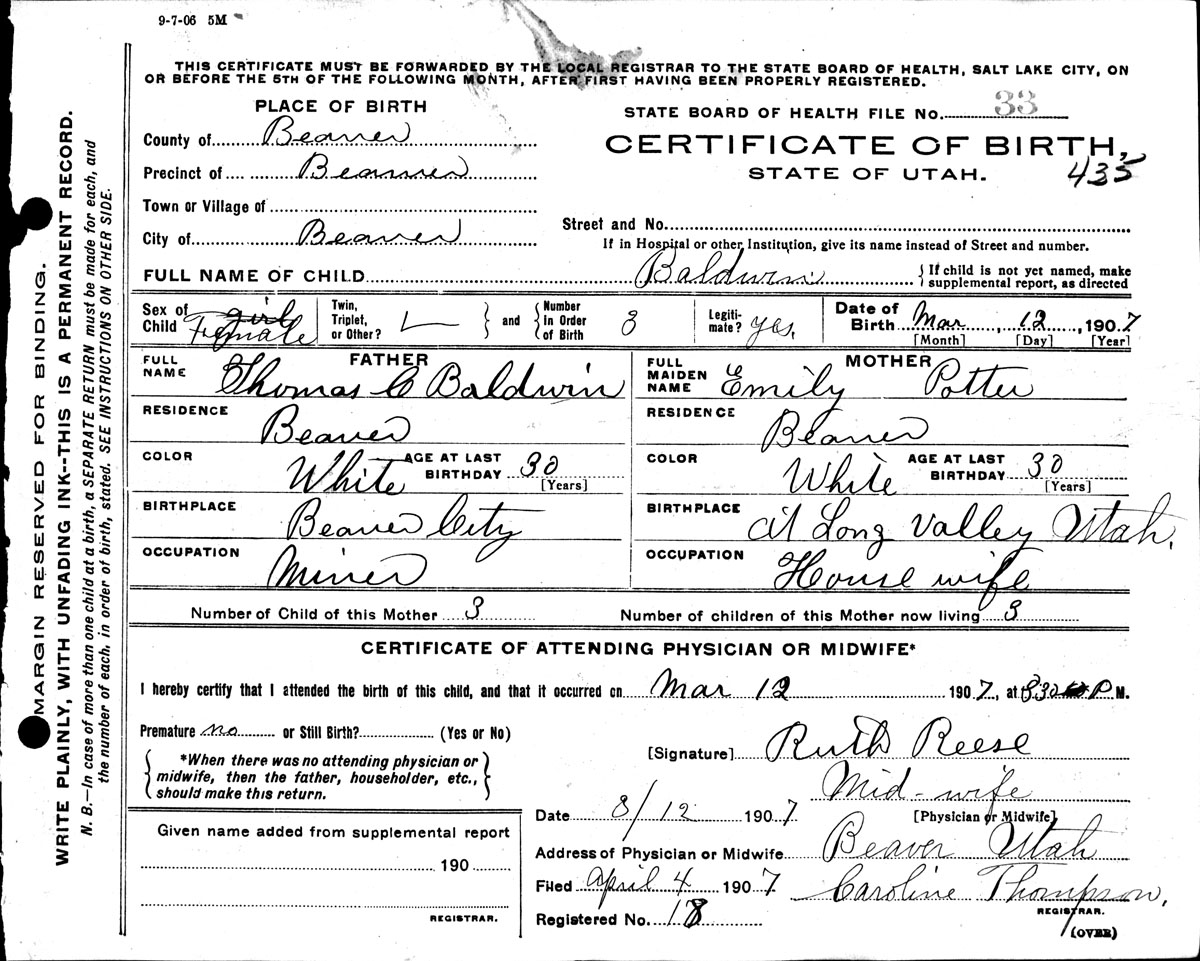 9-7-06 5M
THIS CERTIFICATE MUST BE FORWARDED BY THE LOCAL REGISTRAR TO THE STATE BOARD OF HEALTH, SALT LAKE CITY, ON
OR BEFORE THE 5TH OF THE FOLLOWING MONTH, AFTER FIRST HAVING BEEN PROPERLY REGISTERED.
MARGIN RESERVED FOR BINDING.
WRITE PLAINLY, WITH UNFADING INK--THIS IS A PERMANENT RECORD.
N. B.—In case of more than one child at a birth, a SEPARATE RETURN must be made for each, and
the number of each. in order of birth, stated. SEE INSTRUCTIONS ON OTHER SIDE.
PLACE OF BIRTH
County of Beaver
Precinct of Beaver
Town or Village of
City of Beaver
STATE BOARD OF HEALTH FILE No. 33
CERTIFICATE OF BIRTH,
STATE OF UTAH. 435
Street and No.
If in Hospital or other Institution, give its name instead of Street and number.
FULL NAME OF CHILD Baldwin { If child is not yet named, make
supplemental report, as directed
Sex of Child girl Female
Twin, Triplet, or Other? } and { Number In Order of Birth 3
Legiti-mate? yes.
Date of Birth Mar, 12, 1907
[Month] [Day] [Year]
FATHER
FULL NAME Thomas C Baldwin
RESIDENCE Beaver
COLOR White AGE AT LAST BIRTHDAY 30
[Years]
BIRTHPLACE Beaver City
OCCUPATION Miner
MOTHER
FULL MAIDEN NAME Emily Potter
RESIDENCE Beaver
COLOR White AGE AT LAST BIRTHDAY 30
[Years]
BIRTHPLACE at Long Valley Utah.
OCCUPATION House wife
Number of Child of this Mother 3 Number of children of this Mother now living 3
CERTIFICATE OF ATTENDING PHYSICIAN OR MIDWIFE*
I hereby certify that I attended the birth of this child, and that it occurred on Mar 12 1907, at 830 P.M.
Premature no or Still Birth? (Yes or No)
{ *When there was no attending physician or
midwife, then the father, householder, etc.,
should make this return. }
[Signature] Ruth Reese
Mid-wife
[Physician or Midwife]
Date 3/12 1907
Address of Physician or Midwife Beaver Utah
Filed April 4 1907 Caroline Thompson.
REGISTRAR.
Registered No. 18
(OVER)
Given name added from supplemental report
190
REGISTRAR.